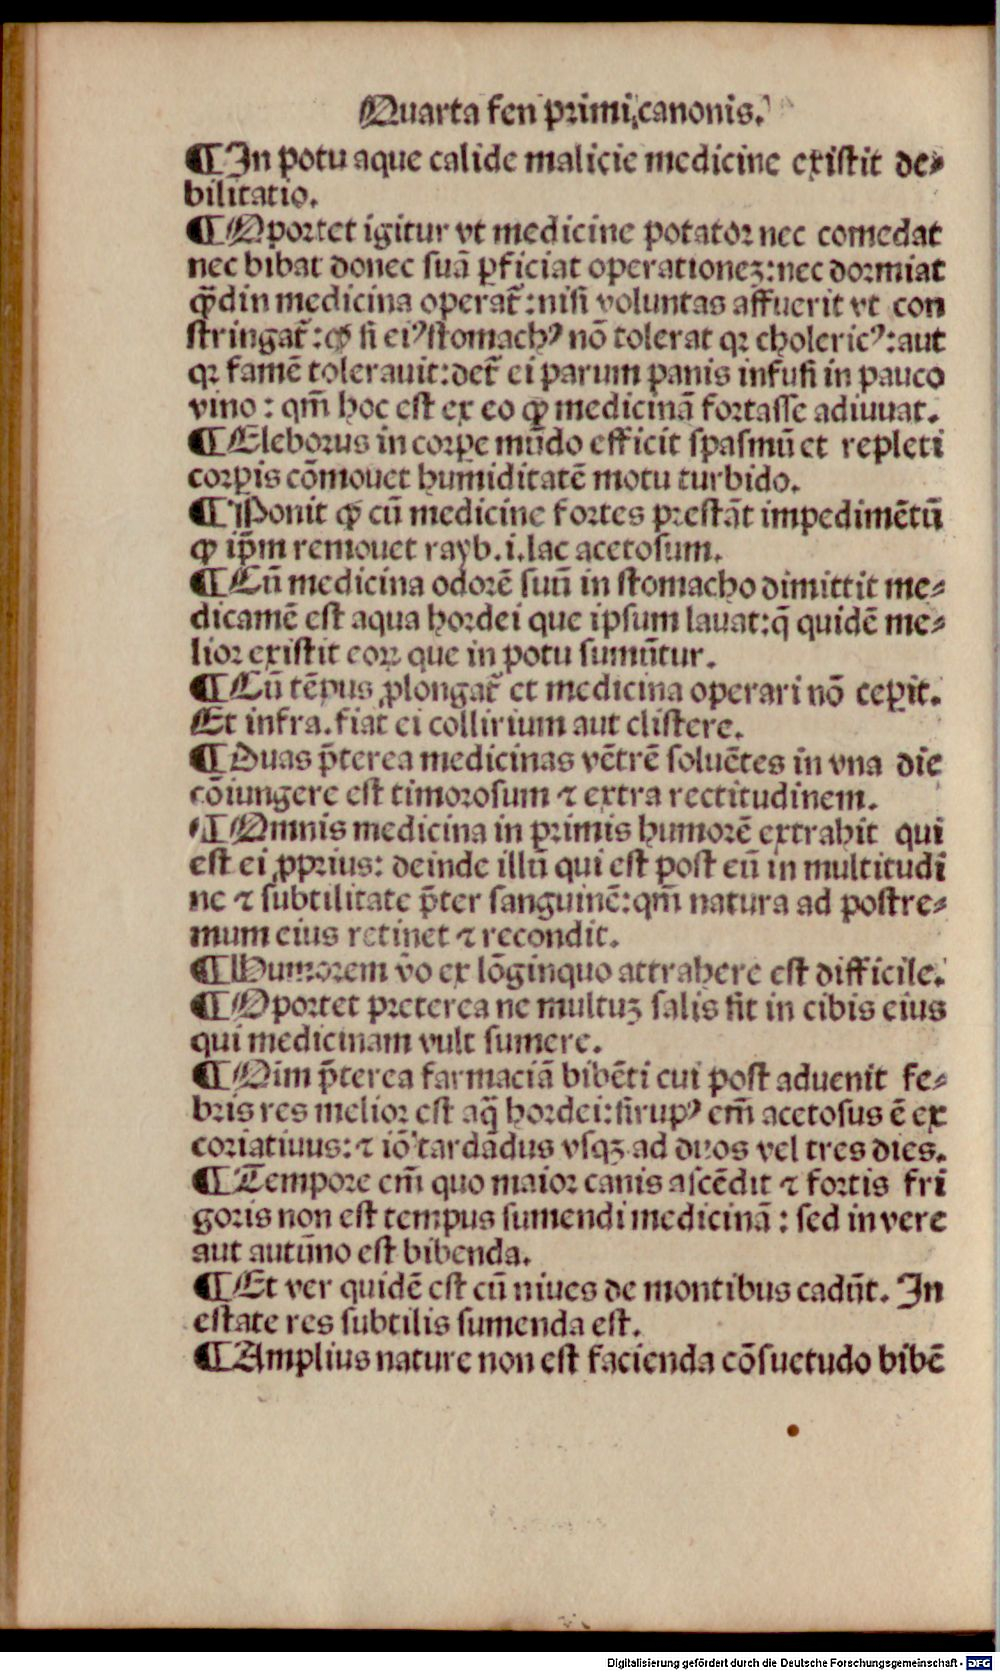 Quarta fen primi canonis.
¶ In potu aque calide malicie medicine existit de⸗
bilitatio.
¶ Oportet igitur vt medicine potator nec comedat
nec bibat donec suã ꝑficiat operationeꝫ: nec dormiat
ꝙ̃din medicina operat᷑: nisi voluntas affuerit vt con
stringat᷑: ꝙ si eiꝰ stomachꝰ nõ tolerat qꝛ cholericꝰ: aut
qꝛ famẽ tolerauit: det᷑ ei parum panis infusi in pauco
vino: qm̃ hoc est ex eo ꝙ medicinã fortasse adiuuat.
¶ Eleborus in corꝑe mũdo efficit spasmũ et repleti
corꝑis cõmouet humiditatẽ motu turbido.
¶ Ponit ꝙ cũ medicine fortes prestãt impedimẽtũ
ꝙ ip̃m remouet rayb.i. lac acetosum.
¶ Cũ medicina odorẽ suũ in stomacho dimittit me⸗
dicamẽ est aqua hordei que ipsum lauat: q̃ quidẽ me⸗
lior existit eoꝝ que in potu sumũtur.
¶ Cũ tẽpus ꝓlongat᷑ et medicina operari nõ ceꝑit.
Et infra. fiat ei collirium aut clistere.
¶ Duas p̃terea medicinas vẽtrẽ soluẽtes in vna die
cõiungere est timorosum ⁊ extra rectitudinem.
¶ Omnis medicina in primis humorẽ extrahit qui
est ei ꝓprius: deinde illũ qui est post eũ in multitudi
ne ⁊ subtilitate p̃ter sanguinẽ: qm̃ natura ad postre⸗
mum eius retinet ⁊ recondit.
¶ Humorem v̄o ex lõginquo attrahere est difficile.
¶ Oportet preterea ne multuꝫ salis sit in cibis eius
qui medicinam vult sumere.
¶ Dim p̃terea farmaciã bibẽti cui post aduenit fe⸗
bris res melior est aq̃ hordei: sirupꝰ em̃ acetosus ẽ ex
coriatiuus: ⁊ iõ tardãdus vsqꝫ ad duos vel tres dies.
¶ Tempore em̃ quo maior canis ascẽdit ⁊ fortis fri
goris non est tempus sumendi medicinã: sed in vere
aut autũno est bibenda.
¶ Et ver quidẽ est cũ niues de montibus cadũt. In
estate res subtilis sumenda est.
¶ Amplius nature non est facienda cõsuetudo bibẽ
Digitalisierung gefördert durch die Deutsche Forschungsgemeinschaft - DFG